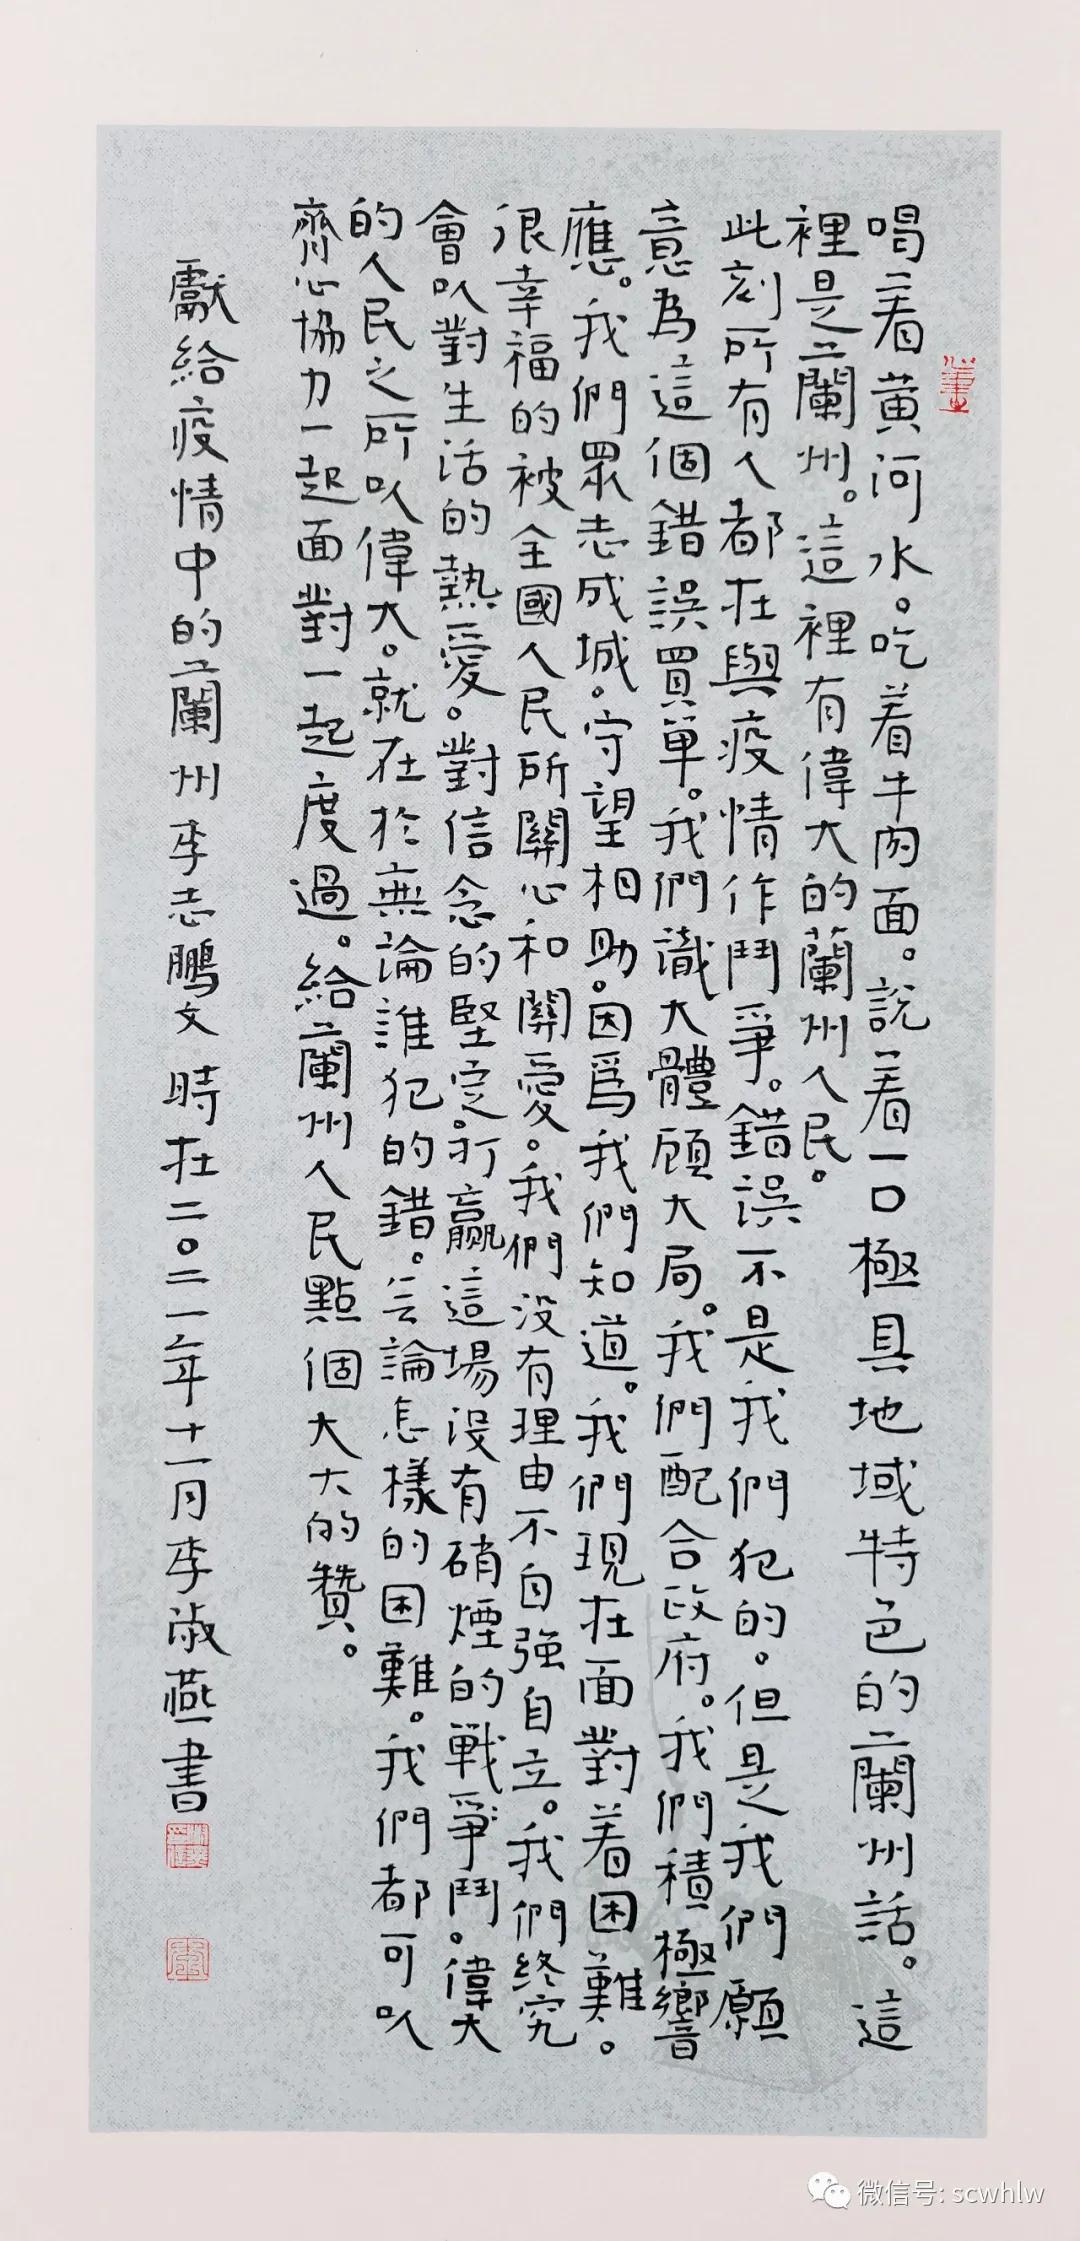 喝着黄河水。吃着牛肉面。説着一口極具地域特色的蘭州話。這
裡是蘭州。這裡有偉大的蘭州人民。
此刻所有人都在與疫情作鬥爭。錯誤不是我們犯的。但是我們願
意為這個錯誤買單。我們識大體顧大局。我們配合政府。我們積極響
應。我們眾志成城。守望相助。因爲我們知道。我們現在面對着困難。
很幸福的被全國人民所關心和關愛。我們没有理由不自強自立。我們終究
會以對生活的熱愛。對信念的堅定。打贏這場没有硝煙的戰爭鬥。偉大
的人民之所以偉大。就在於無論誰犯的錯。無論怎樣的困難。我們都可以
齊心協力一起面對一起度過。給蘭州人民點個大大的贊。
獻給疫情中的蘭州 李志鵬文 時在二〇二一年十一月李淑燕書
微信号: scwhlw